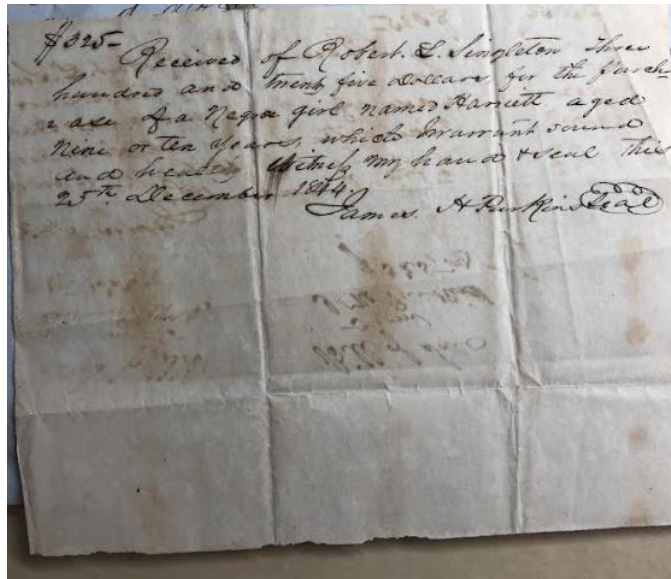 $325-
Received of Robert. L. Singleton three
hundred and twenty five dollars for the purch
ase of a Negro girl named Harriett aged
Nine or ten years, which Warrant sound
and healty Witness my hand & seal this
25th December 1844.
James H Purkins Seal
Bill of Sale